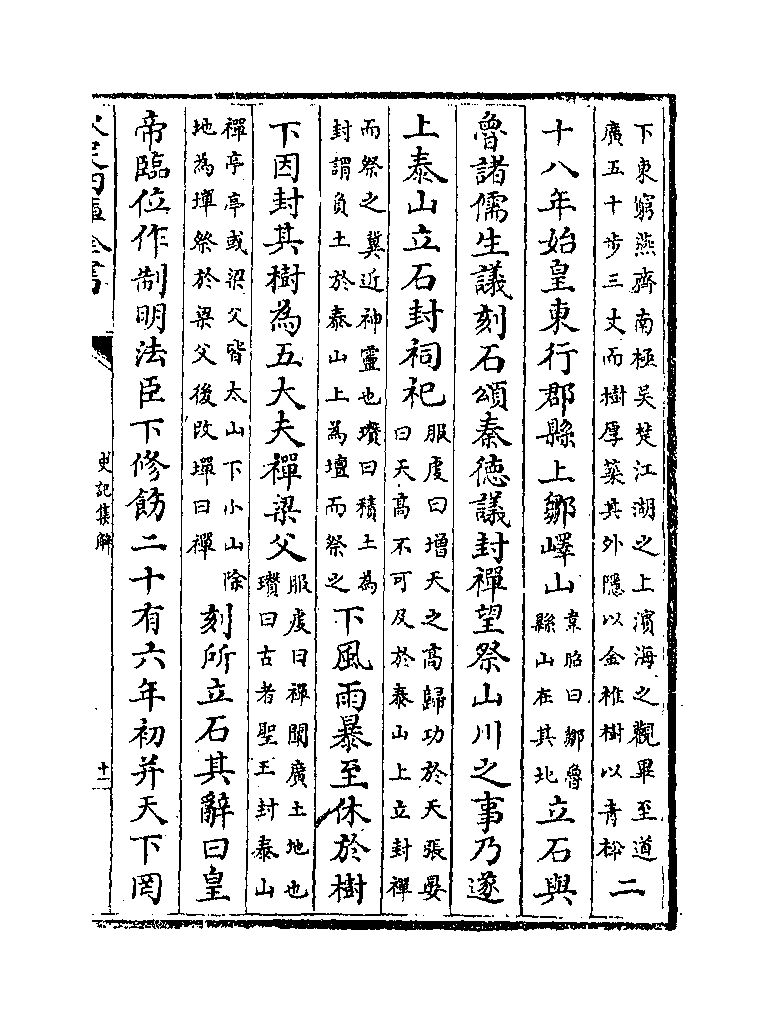 下東窮燕齊南極吳楚江湖之上濱海之觀畢至道
廣五十步三丈而樹厚築其外隱以金椎樹以青松
二
十八年始皇東行郡縣上鄒嶧山
韋昭曰鄒魯
縣山在其北
立石與
魯諸儒生議刻石頌秦德議封禪望祭山川之事乃遂
上泰山立石封祠祀
服虔曰增天之高歸功於天張晏
曰天高不可及於泰山上立封禪
而祭之冀近神靈也瓚曰積土為
封謂負土於泰山上為壇而祭之
下風雨暴至休於樹
下因封其樹為五大夫禪梁父
服虔曰禪闡廣土地也
瓚曰古者聖王封泰山
禪亭亭或梁父皆太山下小山除
地為墠祭於梁父後改墠曰禪
刻所立石其辭曰皇
帝臨位作制明法臣下修飭二十有六年初并天下罔
史記集解
十二